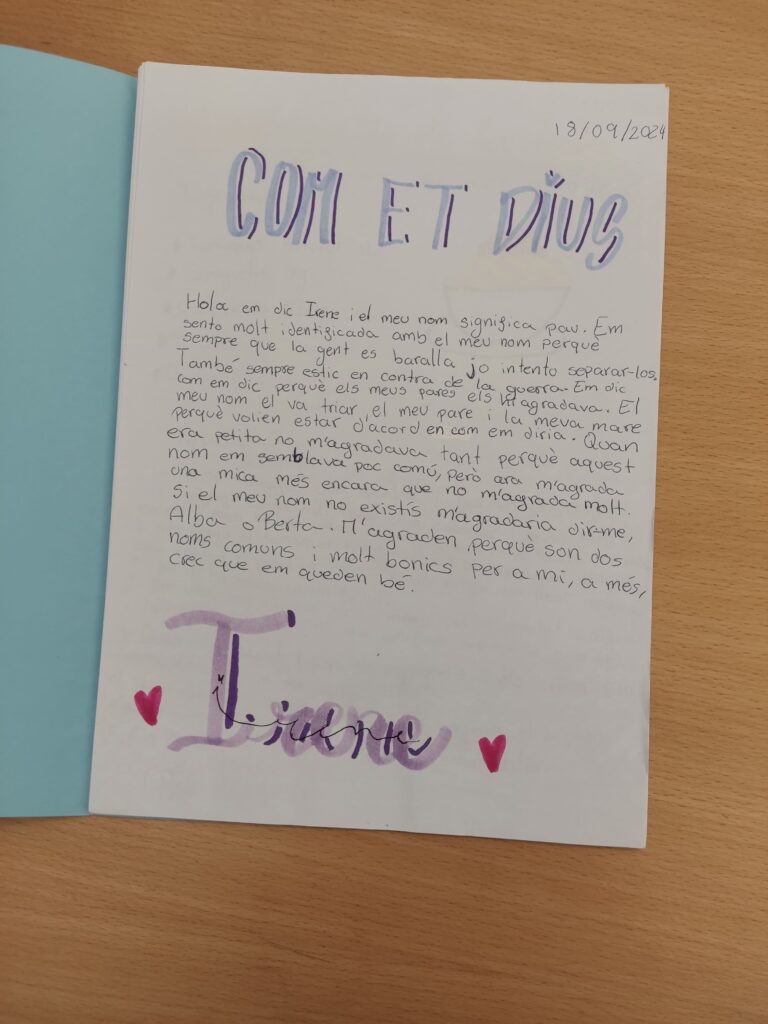 18/09/2024
COM ET DIUS
Hola em dic Irene i el meu nom significa pau. Em
sento molt identificada amb el meu nom perquè
sempre que la gent es baralla jo intento separar-los.
També sempre estic en contra de la guerra. Em dic
com em dic perquè els meus pares els hi agradava. El
meu nom el va triar, el meu pare i la meva mare
perquè volien estar d'acord en com em diria. Quan
era petita no m'agradava tant perquè aquest
nom em semblava poc comú, però ara m'agrada
una mica més encara que no m'agrada molt.
Si el meu nom no existís m'agradaria dir-me,
Alba o Berta. M'agraden, perquè son dos
noms comuns i molt bonics per a mi, a més,
crec que em queden bé.
Irene